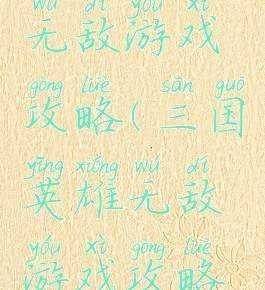 wú dí yóu xì
无敌游戏
gōng lüè sān guó
攻略(三国
yīng xióng wú dí
英雄无敌
yóu xì gōng lüè
游戏攻略